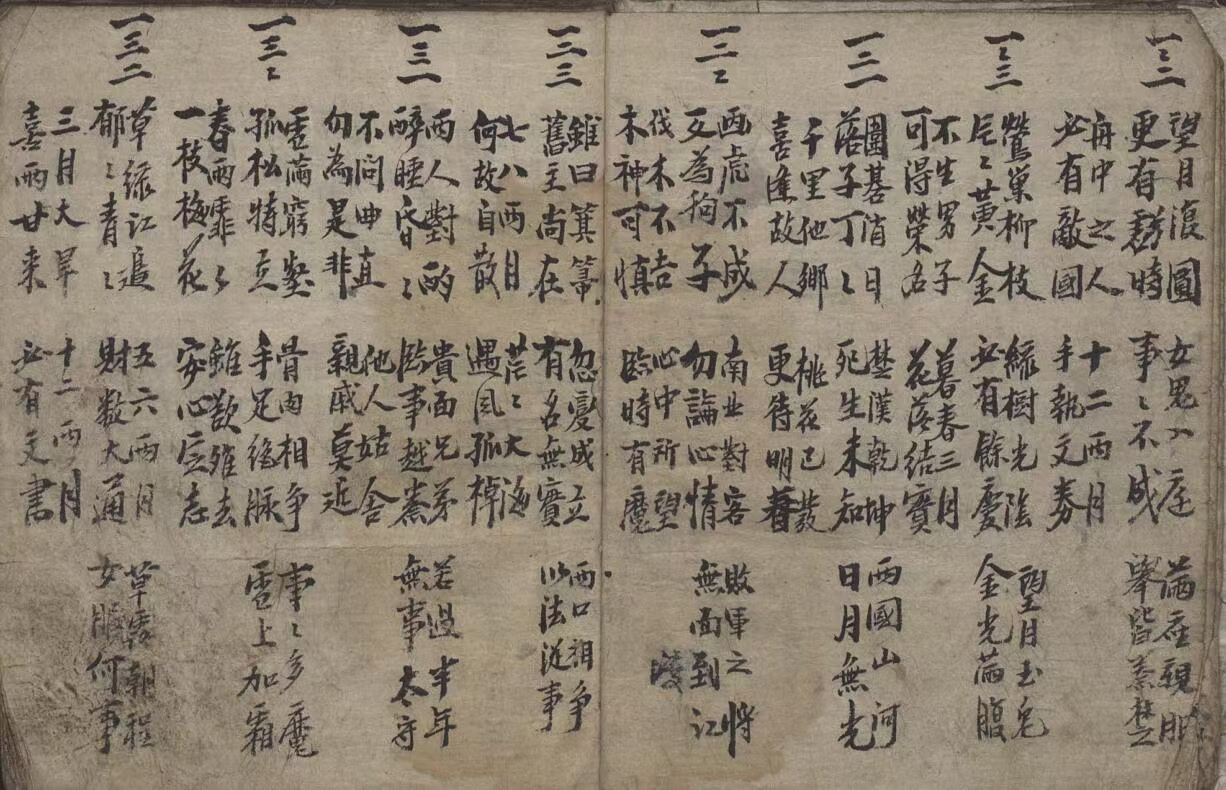 一二二
望月復圓
更有虧時
再中之人
必有敵國
女鬼入庭
事〻不成
十二兩月
手執文券
滿座親朋
舉皆秦楚
一二三
鶯巢柳枝
片〻黃金
不生男子
可得榮名
綠樹光陰
必有餘慶
暮春三月
花落結實
望月玉兔
金光滿腹
一三一
圍碁消日
落子丁〻
千里他鄉
喜逢故人
楚漢乾坤
死生未知
桃花已發
更待明春
兩國山河
日月無光
一三二
画虎不成
反為狗子
伐木不吉
木神可慎
南北對客
勿論心情
心中所望
臨時有魔
敗軍之將
無面到江
渡
一三三
雖曰箕箒
舊主尚在
七八兩月
何故自散
忽變成立
有名無實
茫〻大海
遇風孤棹
兩口相爭
以法從事
一三一
兩人對酌
醉睡昏〻
不問曲直
勿為是非
貴面兄弟
臨事越秦
他人姑舍
親戚莫近
若過半年
無事太守
一三二
雪滿窮壑
孤松特立
春雨霏〻
一枝梅花
骨肉相爭
手足絕脉
雖歎難去
安心定志
事〻多魔
雪上加霜
一三二
草綠江邊
郁〻青〻
三月大旱
喜雨廿来
五六兩月
財数大通
十二兩月
必有文書
草露朝程
女服何事